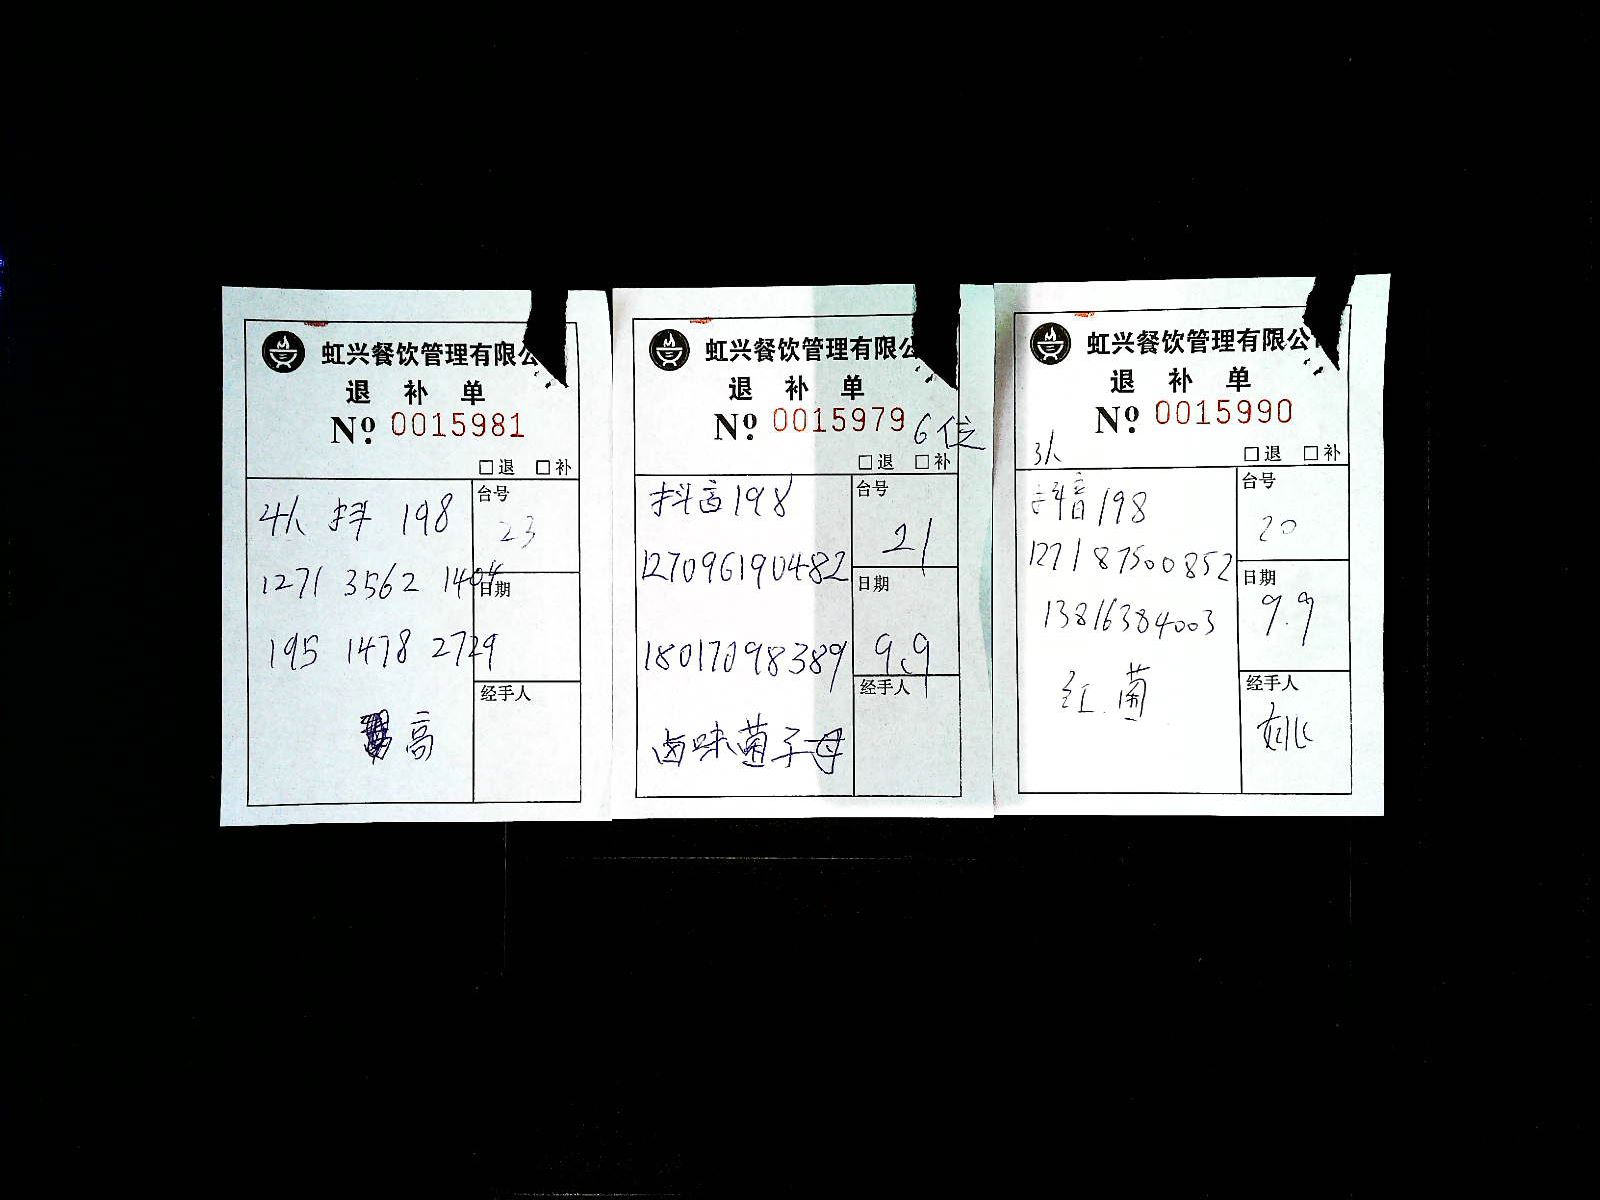 虹兴餐饮管理有限公
退 补 单
Nº 0015981
□退 □补
4人 抖 198
台号
23
1271 3562 1404
日期
195 1478 2729
经手人
高
虹兴餐饮管理有限公
退 补 单
Nº 0015979
6位
□退 □补
抖音198
台号
21
127096190482
日期
18017098389
9.9
经手人
卤味菌子母
虹兴餐饮管理有限公
退 补 单
Nº 0015990
3人
□退 □补
抖音198
台号
20
127187500852
日期
9.9
13816384003
经手人
红.菌
姚